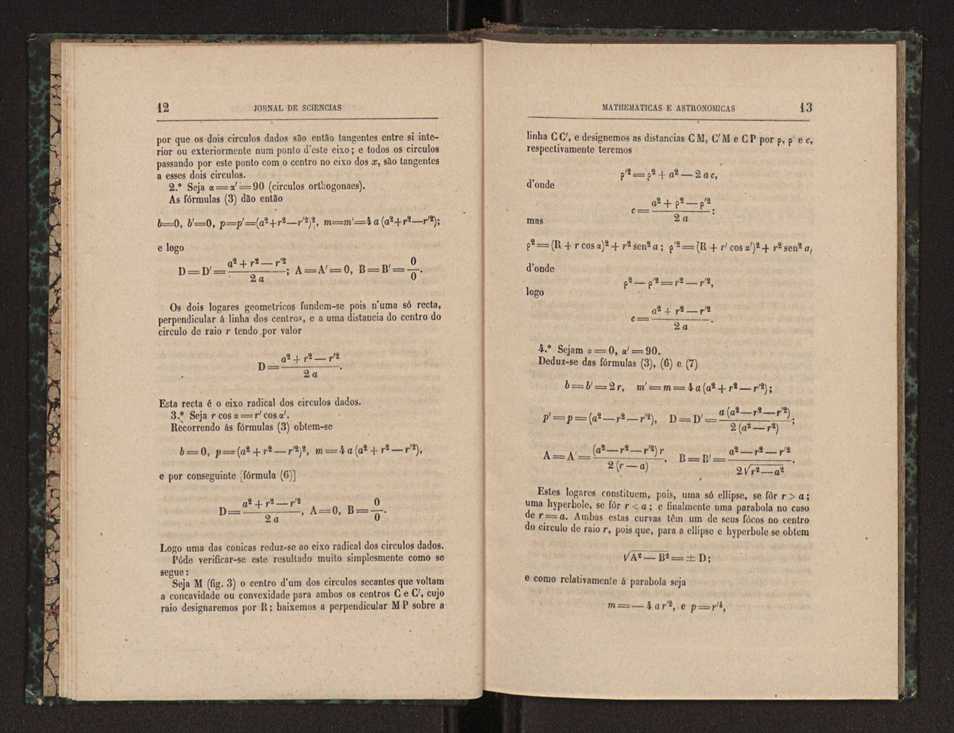 12 JORNAL DE SCIENCIAS
por que os dois circulos dados são então tangentes entre si inte-
rior ou exteriormente num ponto d'este eixo; e todos os circulos
passando por este ponto com o centro no eixo dos x, são tangentes
a esses dois circulos.
2.º Seja α = α' = 90 (circulos orthogonaes).
As fórmulas (3) dão então
b=0, b'=0, p=p'=(a²+r²—r'²)², m=m'=4 a (a²+r²—r'²);
e logo
D = D' = (a² + r² — r'²) / 2 a; A = A' = 0, B = B' = 0/0.
Os dois logares geometricos fundem-se pois n'uma só recta,
perpendicular á linha dos centros, e a uma distancia do centro do
circulo de raio r tendo por valor
D = (a² + r² — r'²) / 2 a.
Esta recta é o eixo radical dos circulos dados.
3.º Seja r cos α = r' cos α'.
Recorrendo ás fórmulas (3) obtem-se
b = 0, p = (a² + r² — r'²)², m = 4 a (a² + r² — r'²),
e por conseguinte [fórmula (6)]
D = (a² + r² — r'²) / 2 a, A = 0, B = 0/0.
Logo uma das conicas reduz-se ao eixo radical dos circulos dados.
Póde verificar-se este resultado muito simplesmente como se
segue:
Seja M (fig. 3) o centro d'um dos circulos secantes que voltam
a concavidade ou convexidade para ambos os centros C e C', cujo
raio designaremos por R; baixemos a perpendicular M P sobre a
MATHEMATICAS E ASTRONOMICAS 13
linha C C', e designemos as distancias C M, C' M e C P por ρ, ρ' e c,
respectivamente teremos
ρ'² = ρ² + a² — 2 a c,
d'onde
c = (a² + ρ² — ρ'²) / 2 a;
mas
ρ² = (R + r cos α)² + r² sen² α; ρ'² = (R + r' cos α')² + r² sen² α,
d'onde
ρ² — ρ'² = r² — r'²,
logo
c = (a² + r² — r'²) / 2 a.
4.º Sejam α = 0, α' = 90.
Deduz-se das fórmulas (3), (6) e (7)
b = b' = 2 r, m' = m = 4 a (a² + r² — r'²);
p' = p = (a² — r² — r'²), D = D' = a (a² — r² — r'²) / 2 (a² — r²);
A = A' = (a² — r² — r'²) r / 2 (r — a), B = B' = (a² — r² — r'²) / 2 √r² — a².
Estes logares constituem, pois, uma só ellipse, se fôr r > a;
uma hyperbole, se fôr r < a; e finalmente uma parabola no caso
de r = a. Ambas estas curvas têm um de seus fócos no centro
do circulo de raio r, pois que, para a ellipse e hyperbole se obtem
√A² — B² = ± D;
e como relativamente á parabola seja
m = — 4 a r'², e p = r'⁴,